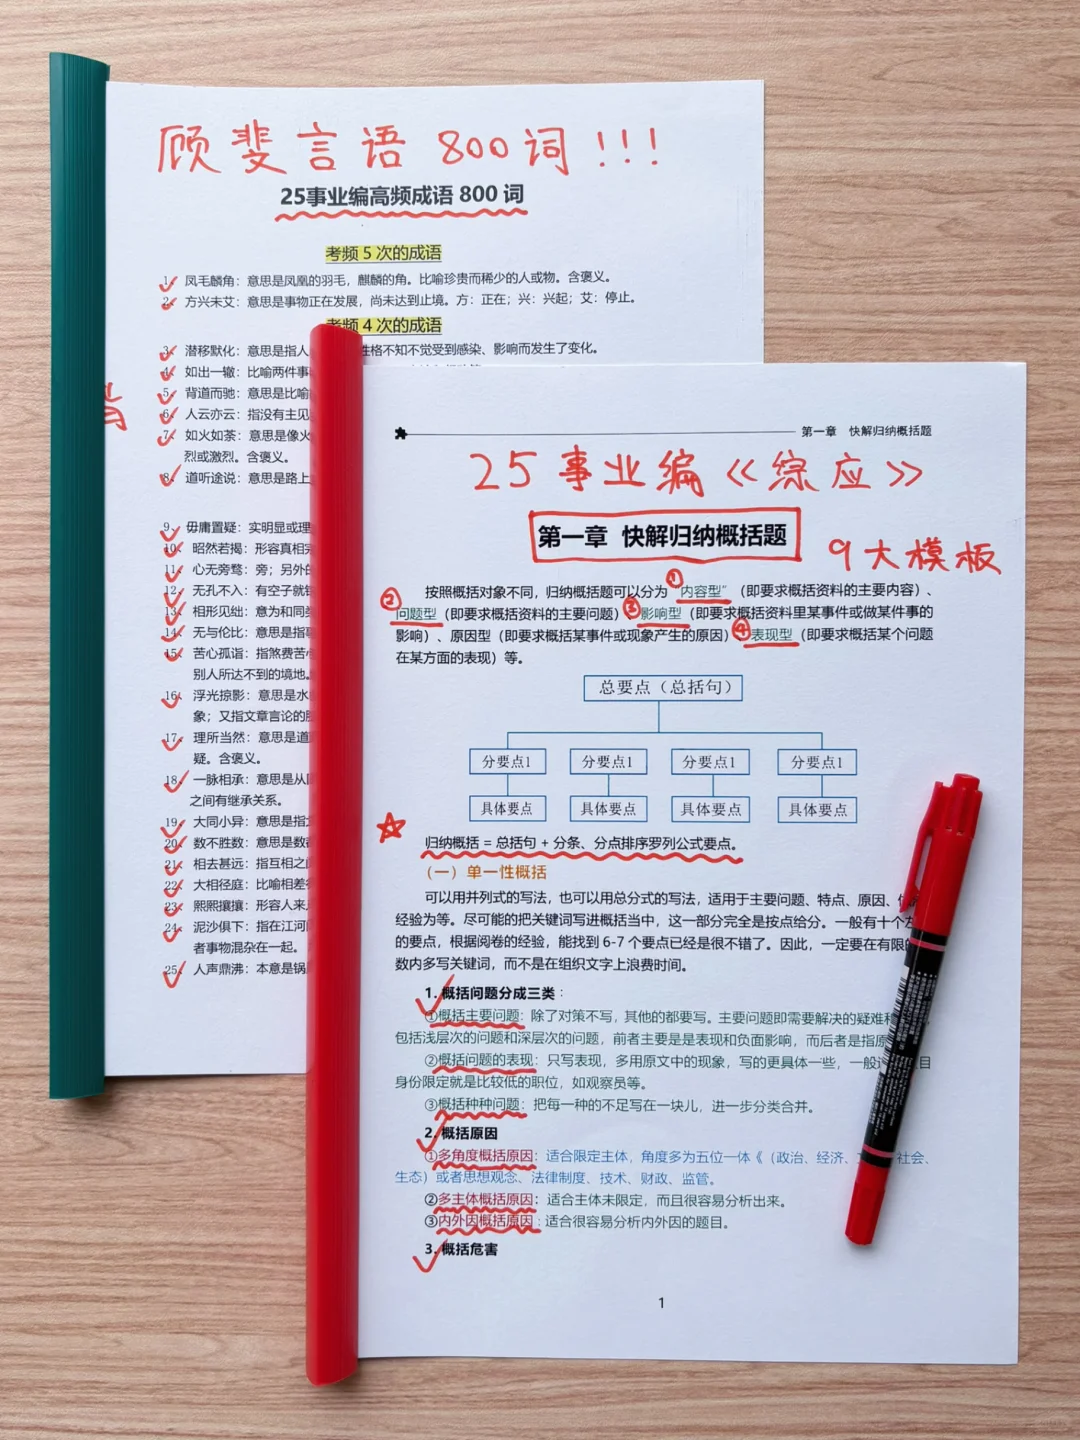 顾斐言语 800词!!!
25事业编高频成语 800 词
考频 5 次的成语
1、凤毛麟角：意思是凤凰的羽毛，麒麟的角。比喻珍贵而稀少的人或物。含褒义。
2、方兴未艾：意思是事物正在发展，尚未达到止境。方：正在；兴：兴起；艾：停止。
考频 4 次的成语
3、潜移默化：意思是指人 性格不知不觉受到感染、影响而发生了变化。
4、如出一辙：比喻两件事
5、背道而驰：意思是比喻
6、人云亦云：指没有主见
7、如火如荼：意思是像火
烈或激烈。含褒义。
8、道听途说：意思是路上
9、毋庸置疑：实明显或理
10、昭然若揭：形容真相完
11、心无旁骛：旁；另外的
12、无孔不入：有空子就钻
13、相形见绌：意为和同类
14、无与伦比：意思是指
15、苦心孤诣：指煞费苦心
别人所达不到的境地。
16、浮光掠影：意思是水
象；又指文章言论的
17、理所当然：意思是道
疑。含褒义。
18、一脉相承：意思是从
之间有继承关系。
19、大同小异：意思是指
20、数不胜数：意思是数
21、相去甚远：指互相之间
22、大相径庭：比喻相差
23、熙熙攘攘：形容人来
24、泥沙俱下：指在江河
者事物混杂在一起。
25、人声鼎沸：本意是锅
第一章 快解归纳概括题
25事业编《综应》
第一章 快解归纳概括题
9大模板
按照概括对象不同，归纳概括题可以分为①“内容型”（即要求概括资料的主要内容）、
②问题型（即要求概括资料的主要问题）③影响型（即要求概括资料里某事件或做某件事的
影响）、原因型（即要求概括某事件或现象产生的原因）④表现型（即要求概括某个问题
在某方面的表现）等。
总要点（总括句）
分要点1 分要点1 分要点1 分要点1
具体要点 具体要点 具体要点 具体要点
归纳概括 = 总括句 + 分条、分点排序罗列公式要点。
（一）单一性概括
可以用并列式的写法，也可以用总分式的写法，适用于主要问题、特点、原因、
经验为等。尽可能的把关键词写进概括当中，这一部分完全是按点给分。一般有十个
的要点，根据阅卷的经验，能找到 6-7 个要点已经是很不错了。因此，一定要在有限
数内多写关键词，而不是在组织文字上浪费时间。
1. 概括问题分成三类：
①概括主要问题：除了对策不写，其他的都要写。主要问题即需要解决的疑难
包括浅层次的问题和深层次的问题，前者主要是是表现和负面影响，而后者是指原
②概括问题的表现：只写表现，多用原文中的现象，写的更具体一些，一般 目
身份限定就是比较低的职位，如观察员等。
③概括种种问题：把每一种的不足写在一块儿，进一步分类合并。
2. 概括原因
①多角度概括原因：适合限定主体，角度多为五位一体《（政治、经济、 社会、
生态）或者思想观念、法律制度、技术、财政、监管。
②多主体概括原因：适合主体未限定，而且很容易分析出来。
③内外因概括原因：适合很容易分析内外因的题目。
3. 概括危害
1